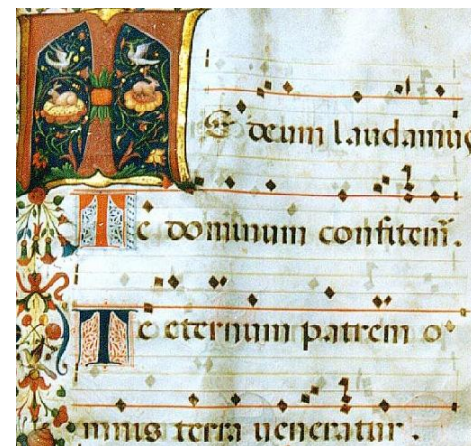 TE deum laudamus
Te dominum confitem̄.
Te eternum patrem o
mnis terra ueneratur.